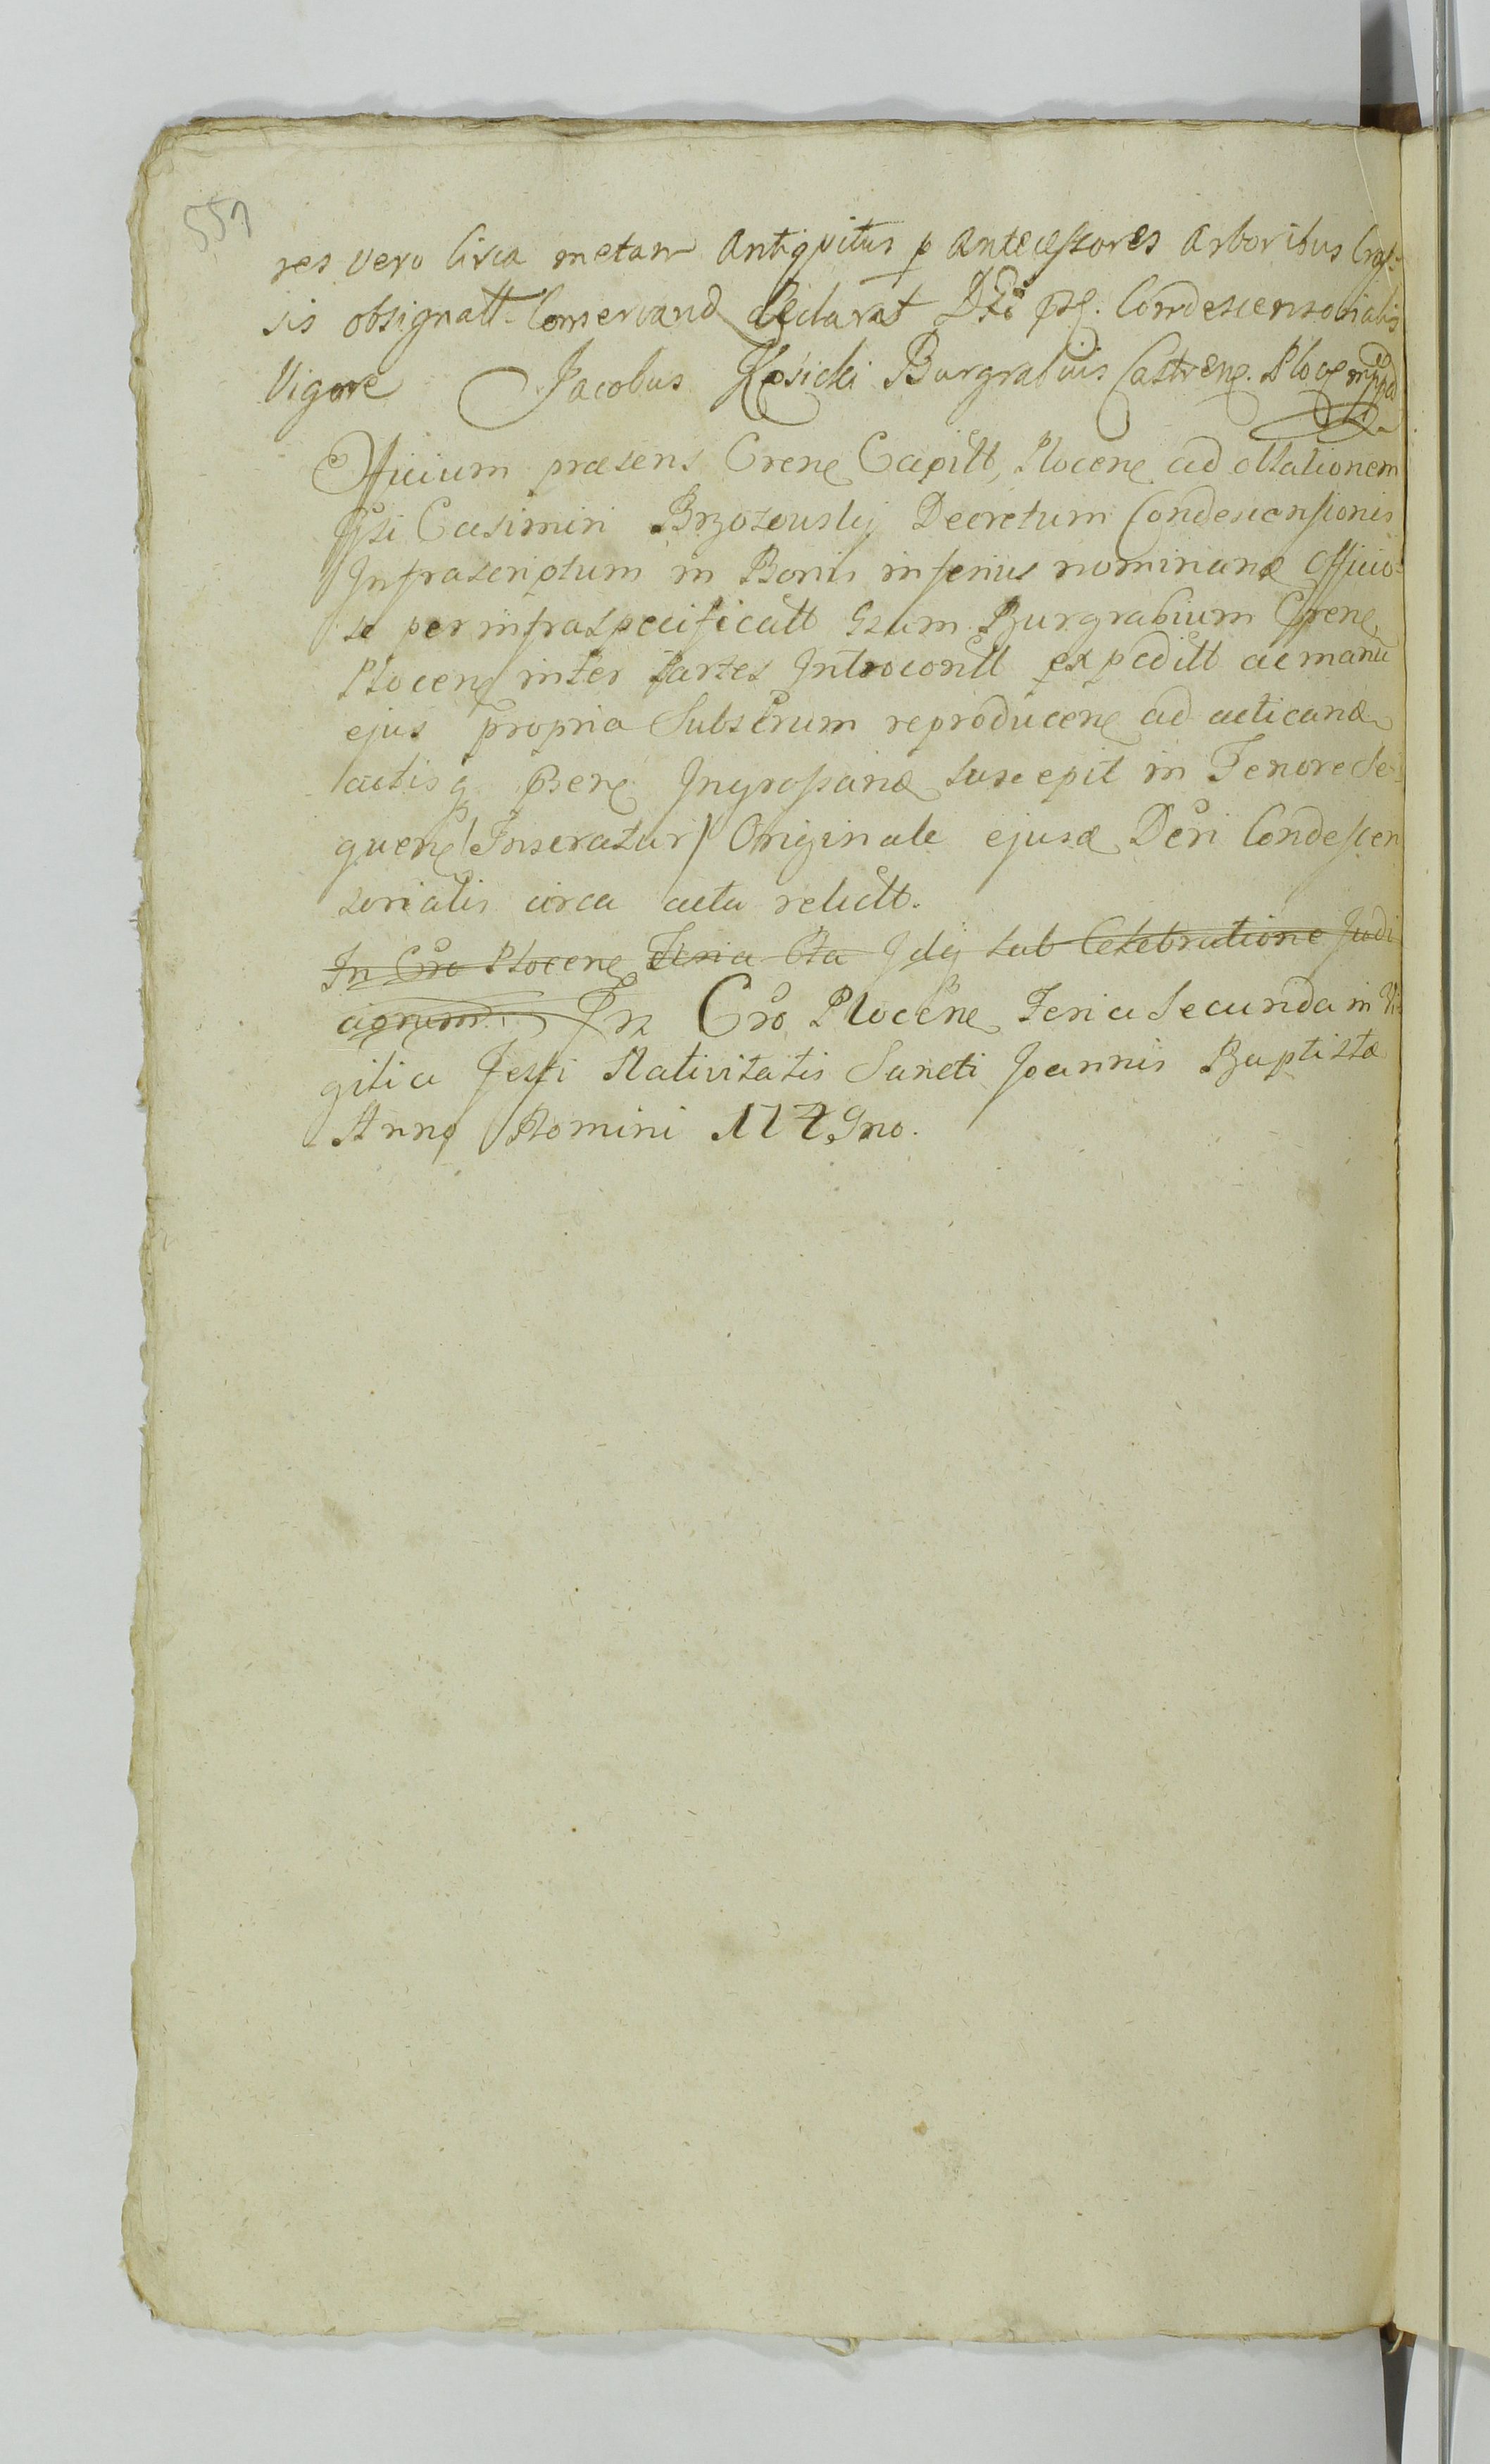 557
res vero Circa metam Antiqvitus p Antecessores Arboribus Cras-
sis obsignatt. Conservand declarat Dti pst. Condescensorialis
Vigore Jacobus Kosicki Burgrabius Castren. Plocen mpp
Officium præsens Crene Capitt, Plocene ad oblationem
Gsi Casimiri Brzozowskij Decretum Condescensionis
Infrascriptum in Bonis inferius nominand Officio-
se per infraspecificatt Gsum Burgrabium Crene
Plocene inter Partes Introcontt expeditt ac manu
ejus propria Subscrum reproducene ad acticand
actisq Psene Ingrossand suscepit in Tenore Se-
quene /Inseratur/ Originale ejusd Dcri Condescen
sorialis circa acta relictt.
In Cro Plocene Feria 6ta Idq sub Celebratione Judi
ciorum. In Cro Plocene Feria Secunda in Vi-
gilia Festi Nativitatis Sancti Joannis Baptistæ
Anno Domini 1749no.